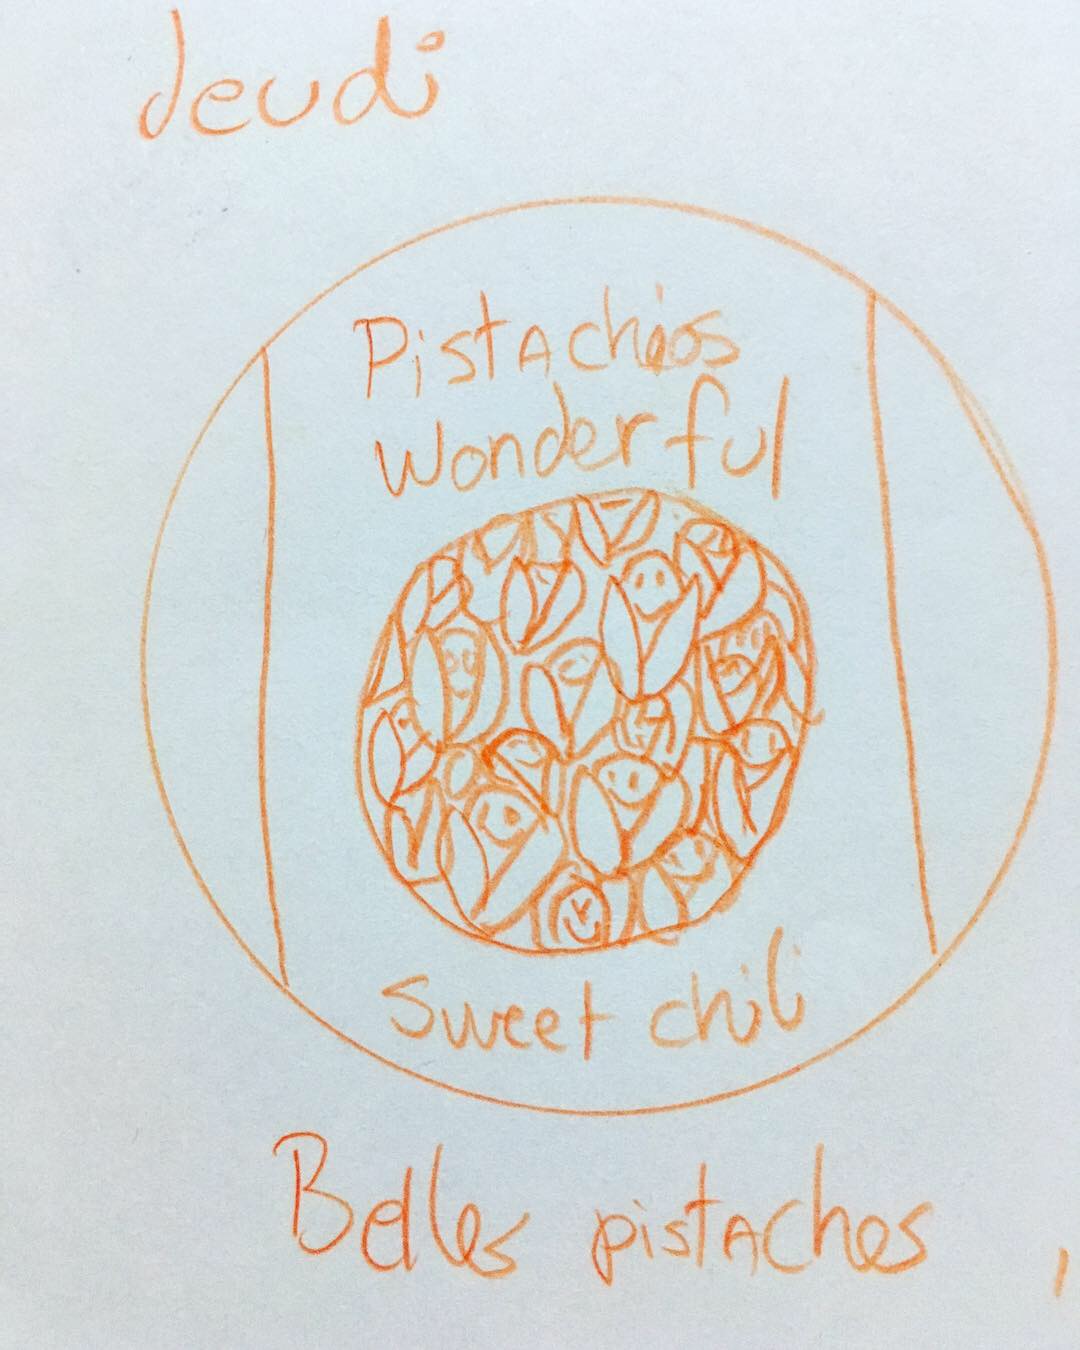 Jeudi
Pistachios
Wonderful
Sweet chili
Belles pistaches